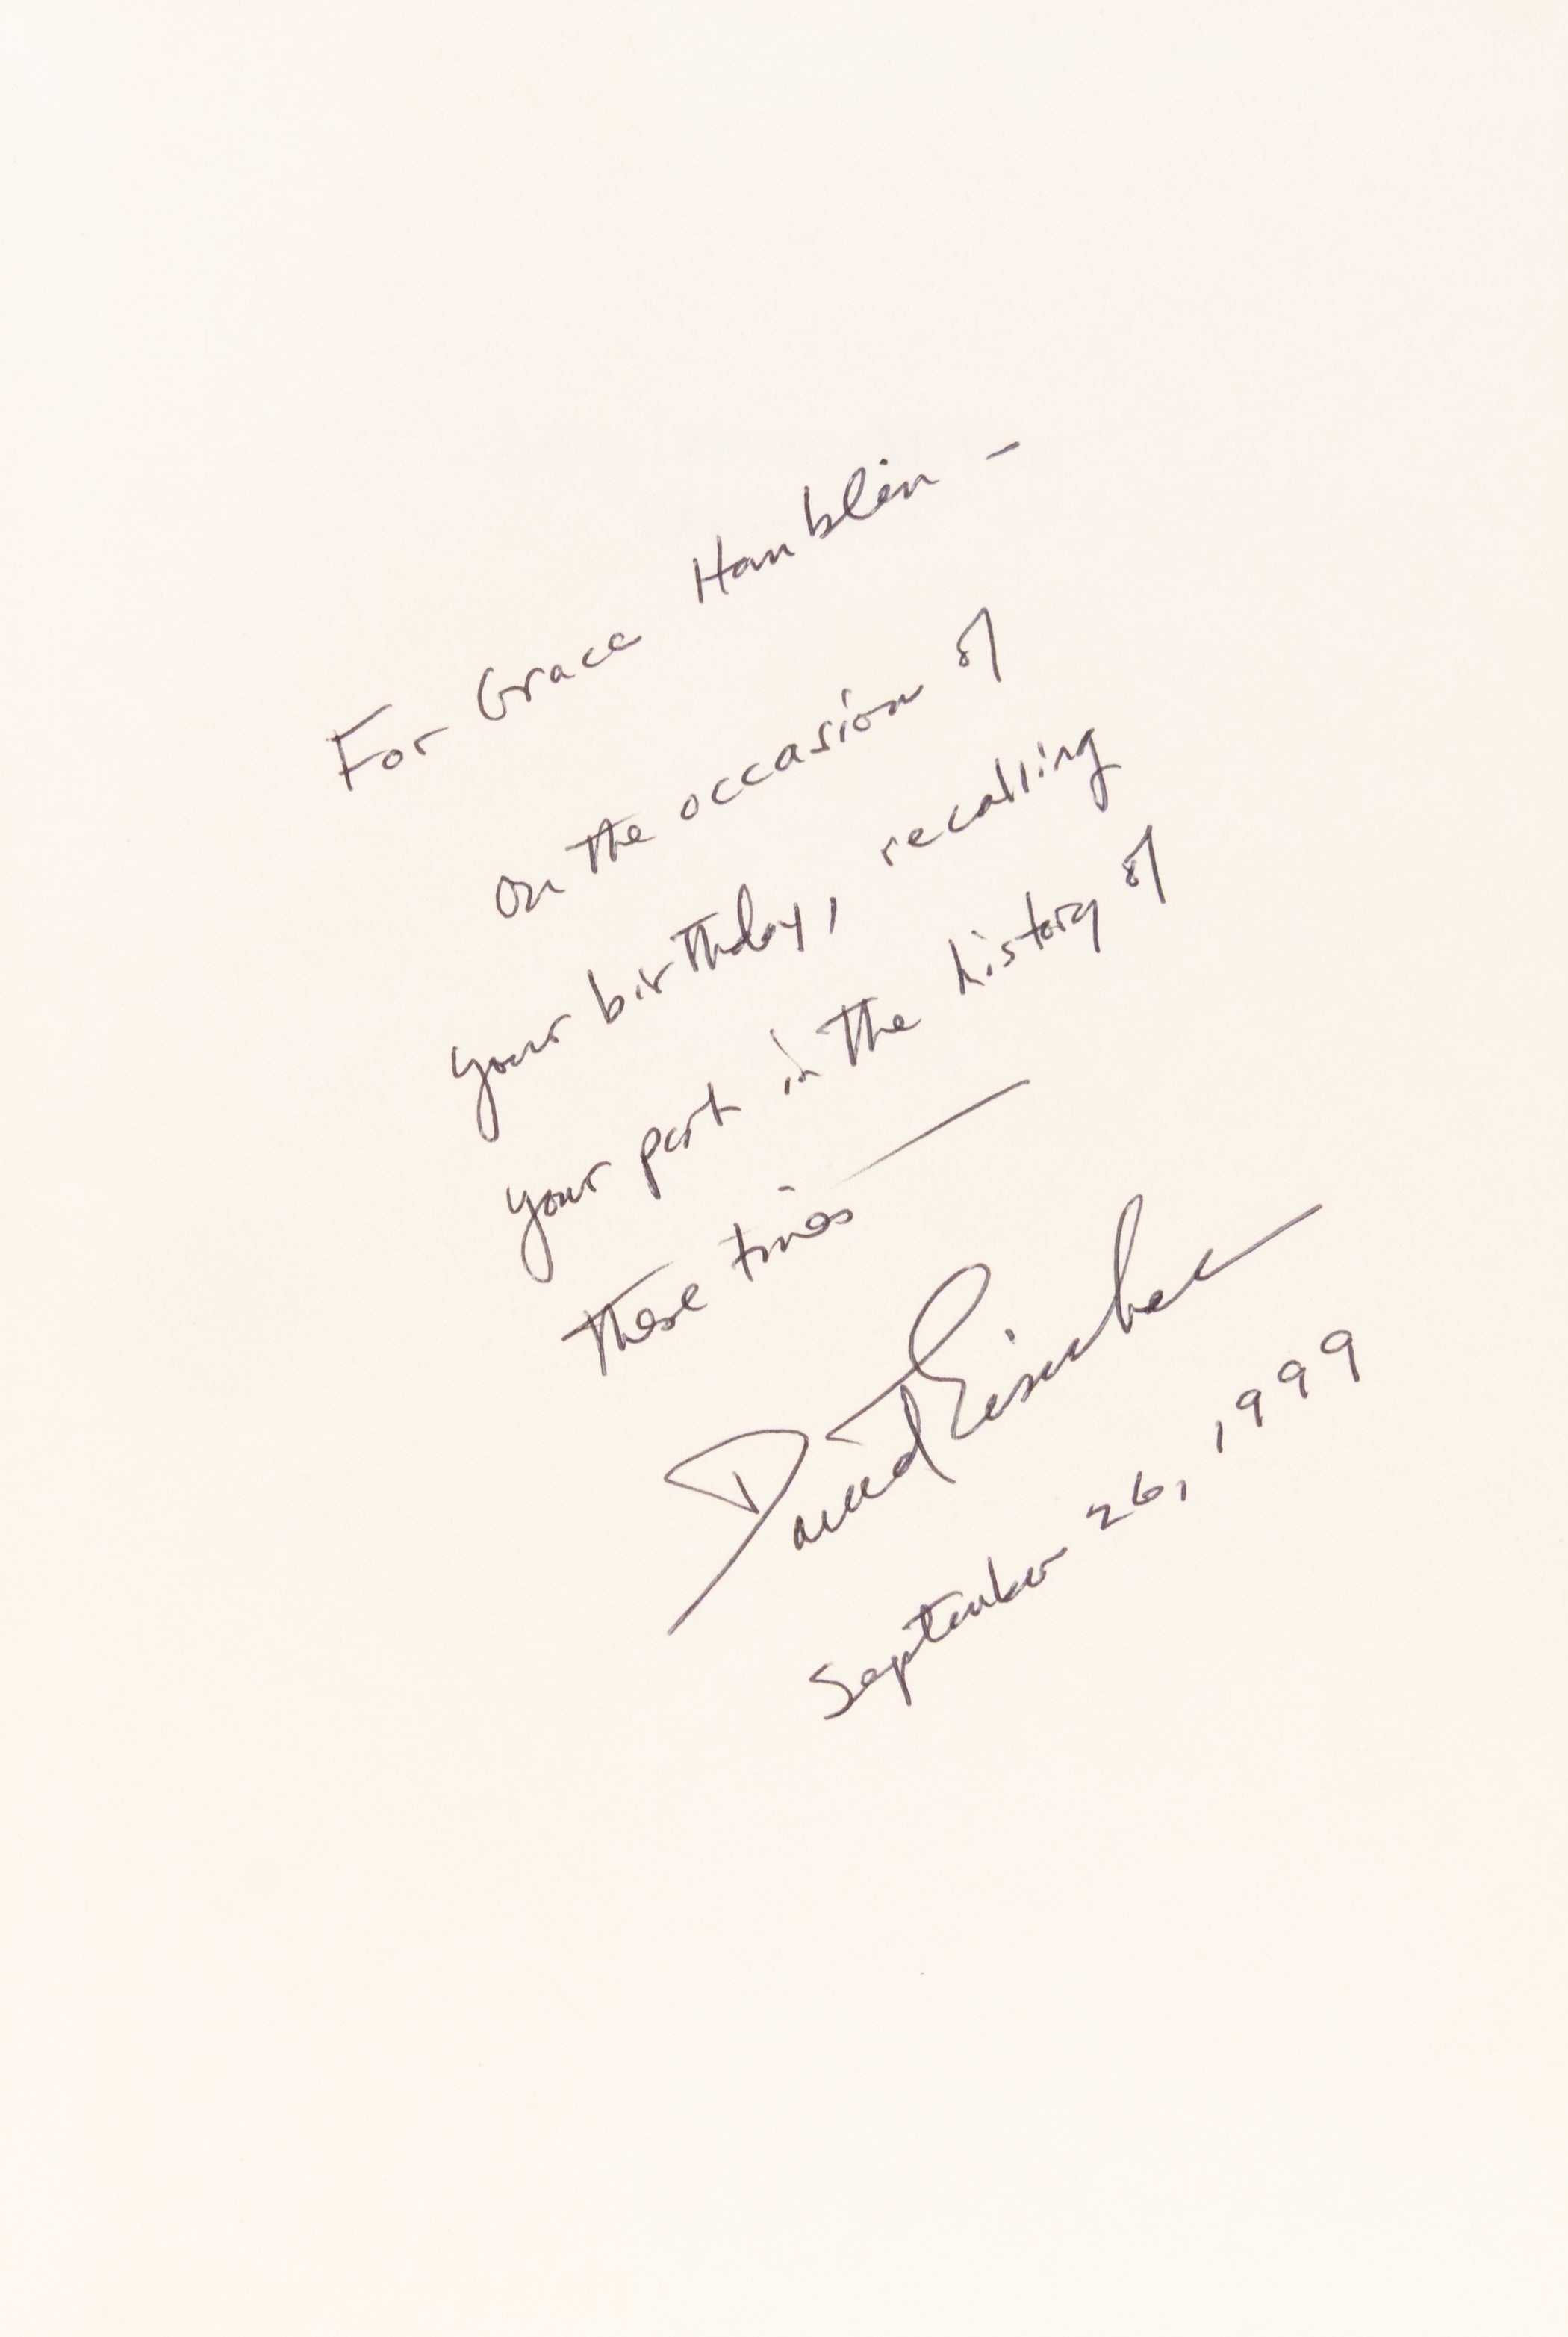 For Grace Hamblin –
on the occasion of
your birthday, recalling
your part in the history of
these times —
David Eisenhower
September 26, 1999